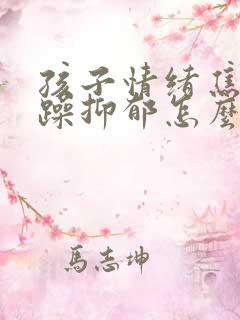 孩子情绪焦
躁抑郁怎麽
馬志坤